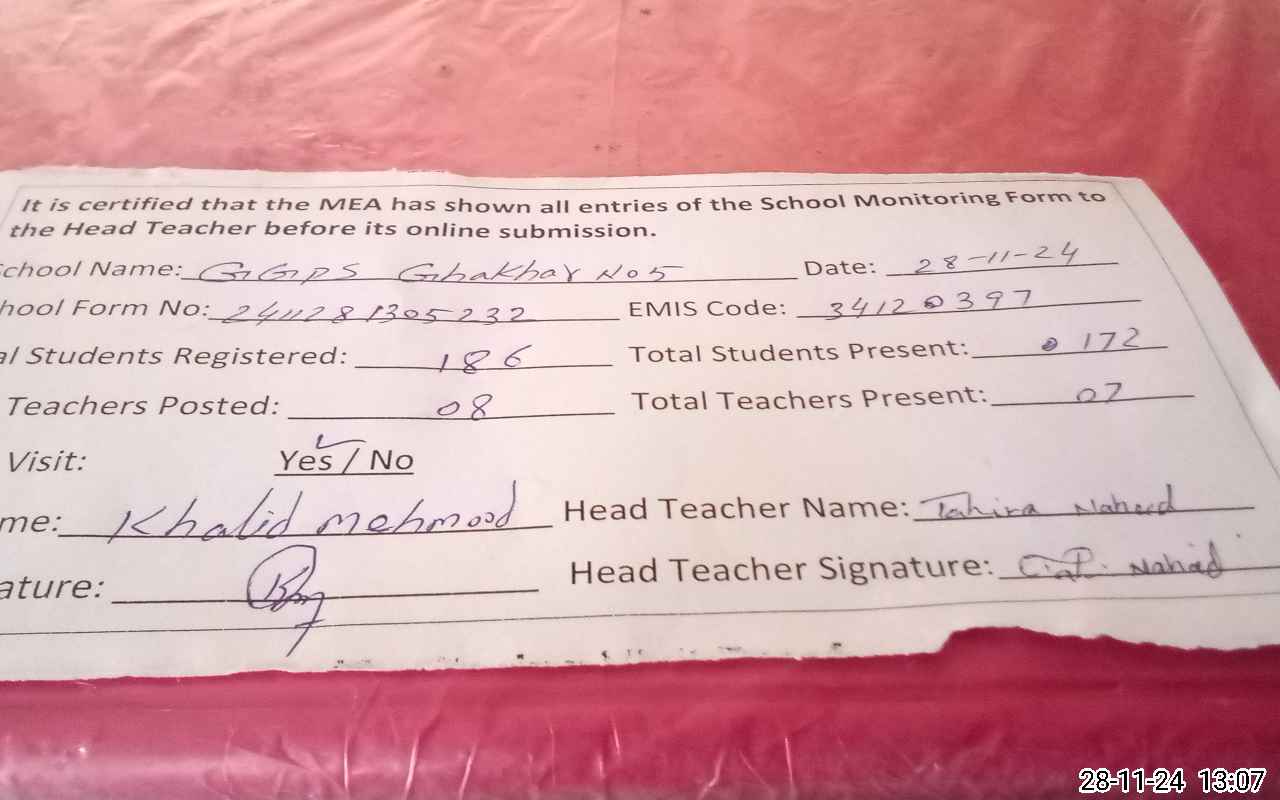 It is certified that the MEA has shown all entries of the School Monitoring Form to
the Head Teacher before its online submission.
School Name: GGPS Ghakhar No 5 Date: 28-11-24
hool Form No: 2411281305232 EMIS Code: 34120397
al Students Registered: 186 Total Students Present: 172
Teachers Posted: 08 Total Teachers Present: 07
Visit: Yes / No
me: Khalid Mehmood Head Teacher Name: Tahira Naheed
ature: Head Teacher Signature: Naheed
28-11-24 13:07